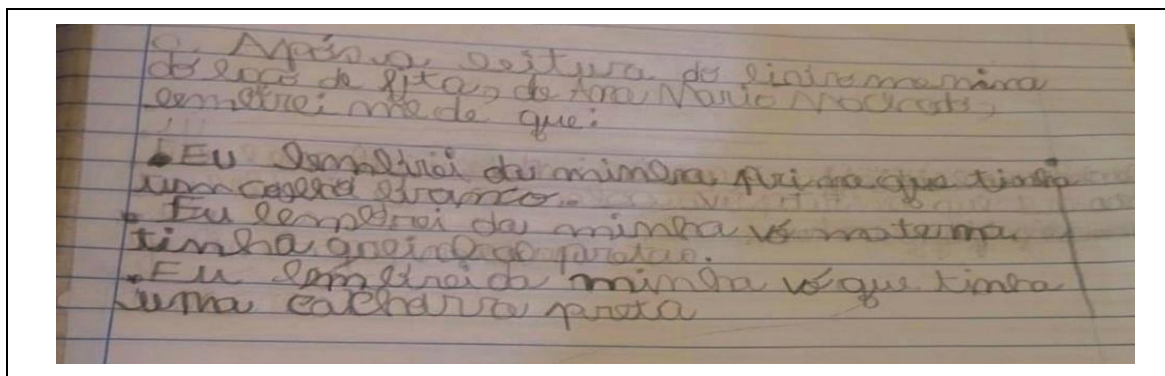 Após a leitura do livro menina
do laço de fita, de Ana Maria Machado,
lembrei me de que:
• Eu lembrei da minha prima que tinha
um coelho branco.
• Eu lembrei da minha vó materna
tinha preto.
• Eu lembrei da minha vó que tinha
uma cachorra preta